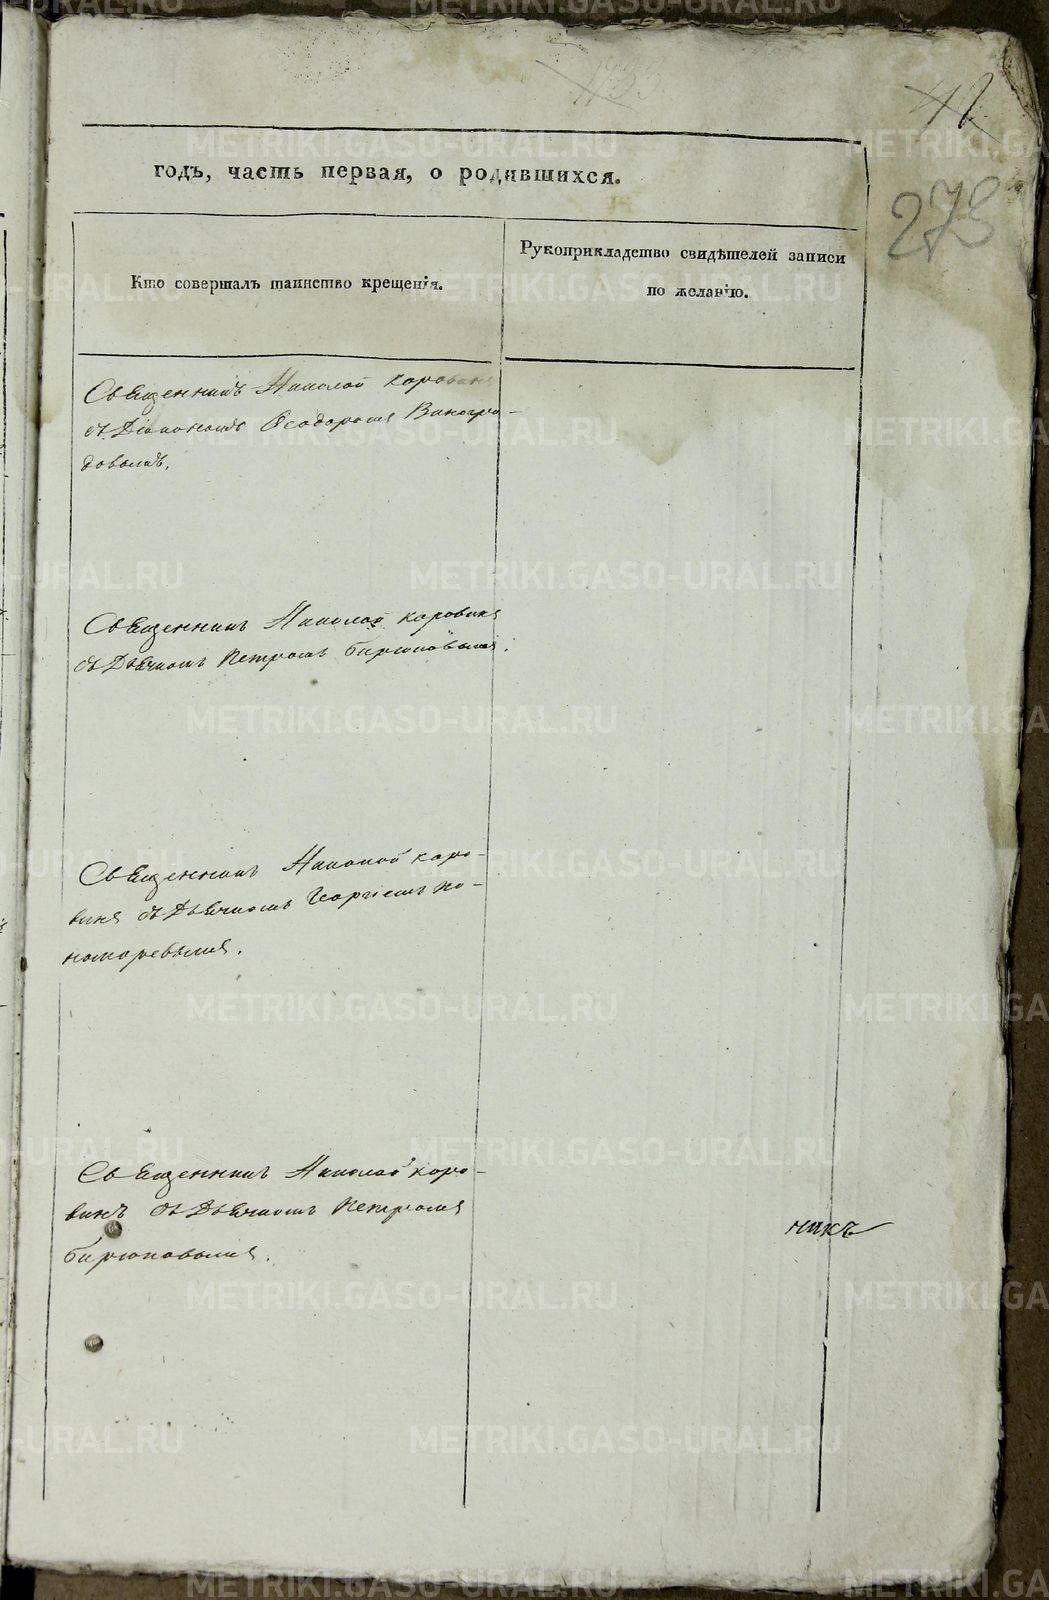 42
273
годъ, часть первая, о родившихся.
Кто совершалъ таинство крещенія.
Рукоприкладство свидѣтелей записи
по желанію.
Священникъ Николай Коровинъ
съ Діакономъ Ѳеодоромъ Виногра-
довымъ.
Священникъ Николай Коровинъ
съ Дьячкомъ Петромъ Бирюковымъ.
Священникъ Николай Коро-
винъ съ Дьячкомъ Георгіемъ По-
номаревымъ.
Священникъ Николай Коро-
винъ съ Дьячкомъ Петромъ
Бирюковымъ.
никъ
METRIKI.GASO-URAL.RU